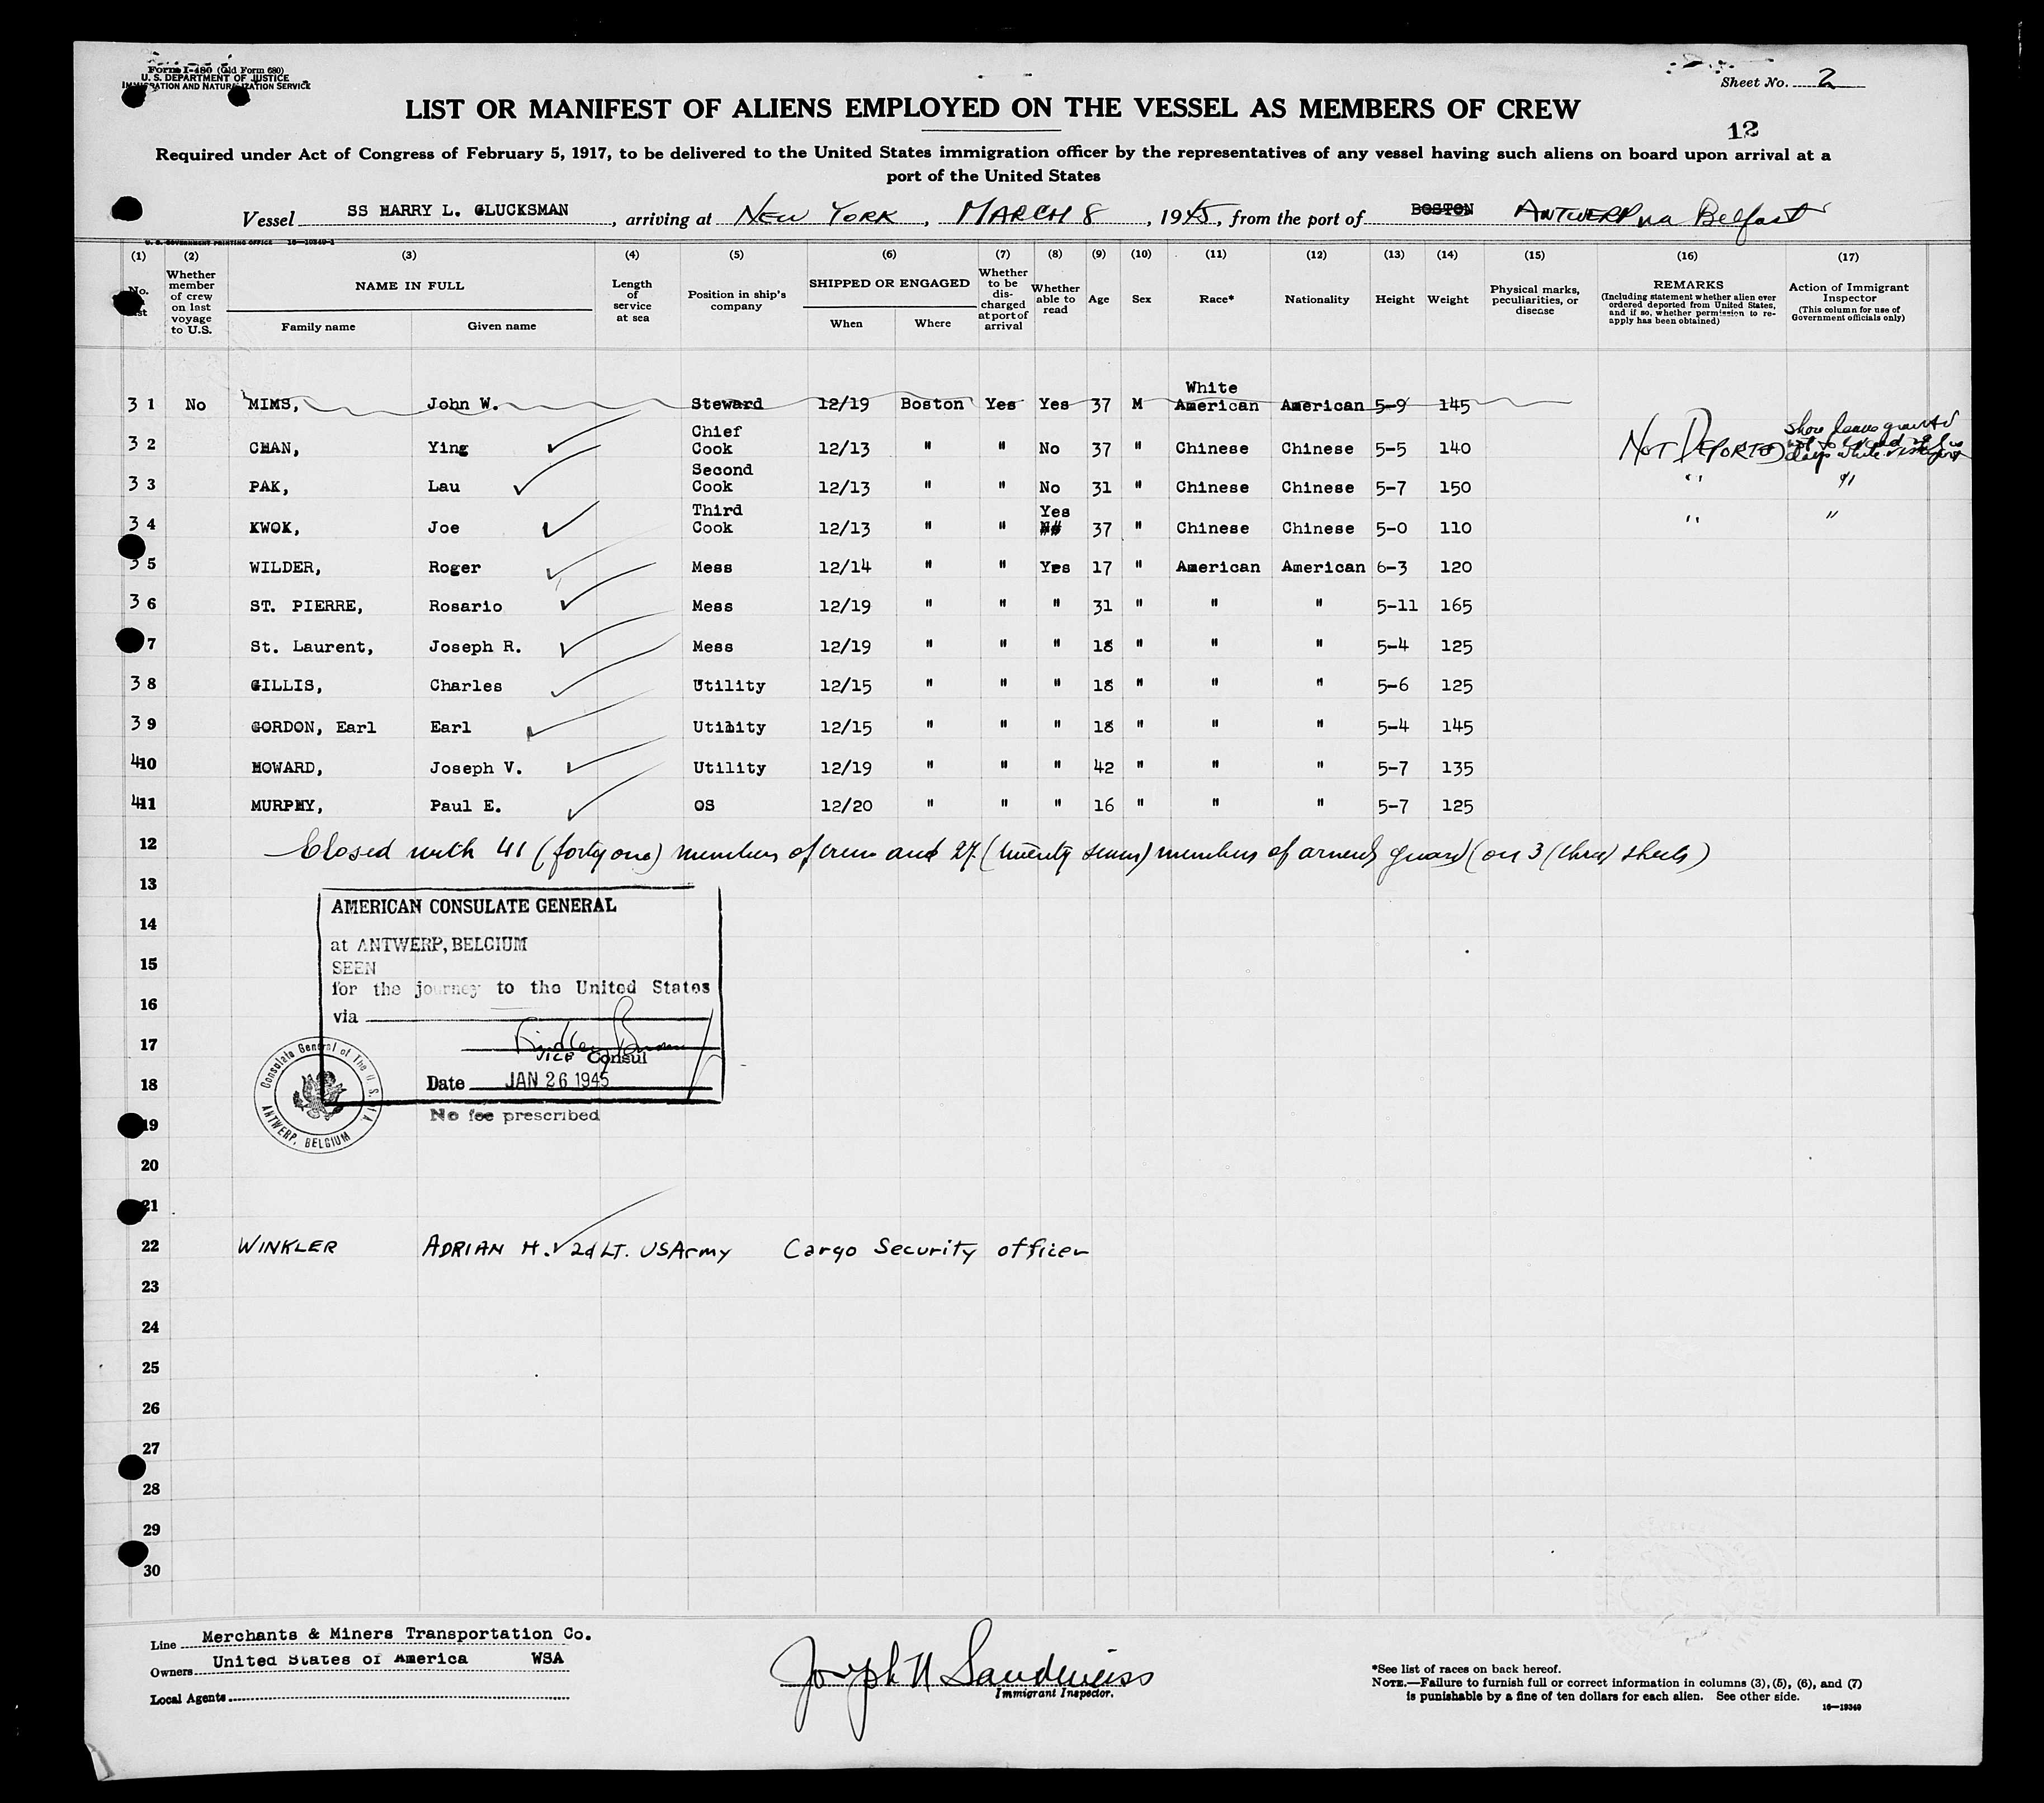 Form I-480 (Old Form 680)
U. S. DEPARTMENT OF JUSTICE
IMMIGRATION AND NATURALIZATION SERVICE
Sheet No. 2
LIST OR MANIFEST OF ALIENS EMPLOYED ON THE VESSEL AS MEMBERS OF CREW
12
Required under Act of Congress of February 5, 1917, to be delivered to the United States immigration officer by the representatives of any vessel having such aliens on board upon arrival at a
port of the United States
Vessel SS HARRY L. GLUCKSMAN, arriving at NEW YORK, MARCH 8, 1945, from the port of BOSTON ANTWERP via Belfast
U. S. GOVERNMENT PRINTING OFFICE 16—19349-1
(1) (2) (3) (4) (5) (6) (7) (8) (9) (10) (11) (12) (13) (14) (15) (16) (17)
No. list
Whether member of crew on last voyage to U.S.
NAME IN FULL
Family name Given name
Length of service at sea
Position in ship's company
SHIPPED OR ENGAGED
When Where
Whether to be discharged at port of arrival
Whether able to read
Age
Sex
Race*
Nationality
Height
Weight
Physical marks, peculiarities, or disease
REMARKS
(Including statement whether alien ever ordered deported from United States, and if so, whether permission to re-apply has been obtained)
Action of Immigrant Inspector
(This column for use of Government officials only)
31 No MIMS, John W. Steward 12/19 Boston Yes Yes 37 M White American American 5-9 145
32 CHAN, Ying Chief Cook 12/13 " " No 37 " Chinese Chinese 5-5 140 NOT DEPORTED Shore leave granted
33 PAK, Lau Second Cook 12/13 " " No 31 " Chinese Chinese 5-7 150 " "
34 KWOK, Joe Third Cook 12/13 " " Yes 37 " Chinese Chinese 5-0 110 " "
35 WILDER, Roger Mess 12/14 " " Yes 17 " American American 6-3 120
36 ST. PIERRE, Rosario Mess 12/19 " " " 31 " " " 5-11 165
7 St. Laurent, Joseph R. Mess 12/19 " " " 18 " " " 5-4 125
38 GILLIS, Charles Utility 12/15 " " " 18 " " " 5-6 125
39 GORDON, Earl Earl Utility 12/15 " " " 18 " " " 5-4 145
410 HOWARD, Joseph V. Utility 12/19 " " " 42 " " " 5-7 135
411 MURPHY, Paul E. OS 12/20 " " " 16 " " " 5-7 125
12 Closed with 41 (forty one) members of crew and 27 (twenty seven) members of armed guard (on 3 (three) sheets)
13
AMERICAN CONSULATE GENERAL
14
at ANTWERP, BELGIUM
15
SEEN
for the journey to the United States
16
via
17
VICE Consul
18
Date JAN 26 1945
No fee prescribed
Consulate General of The U. S. of A.
ANTWERP, BELGIUM
19
20
21
22 WINKLER ADRIAN H. 2d LT. US Army Cargo Security officer
23
24
25
26
27
28
29
30
Line Merchants & Miners Transportation Co.
Owners United States of America WSA
Local Agents
Joseph N Sandweiss
Immigrant Inspector.
*See list of races on back hereof.
NOTE.—Failure to furnish full or correct information in columns (3), (5), (6), and (7)
is punishable by a fine of ten dollars for each alien. See other side.
16—19349